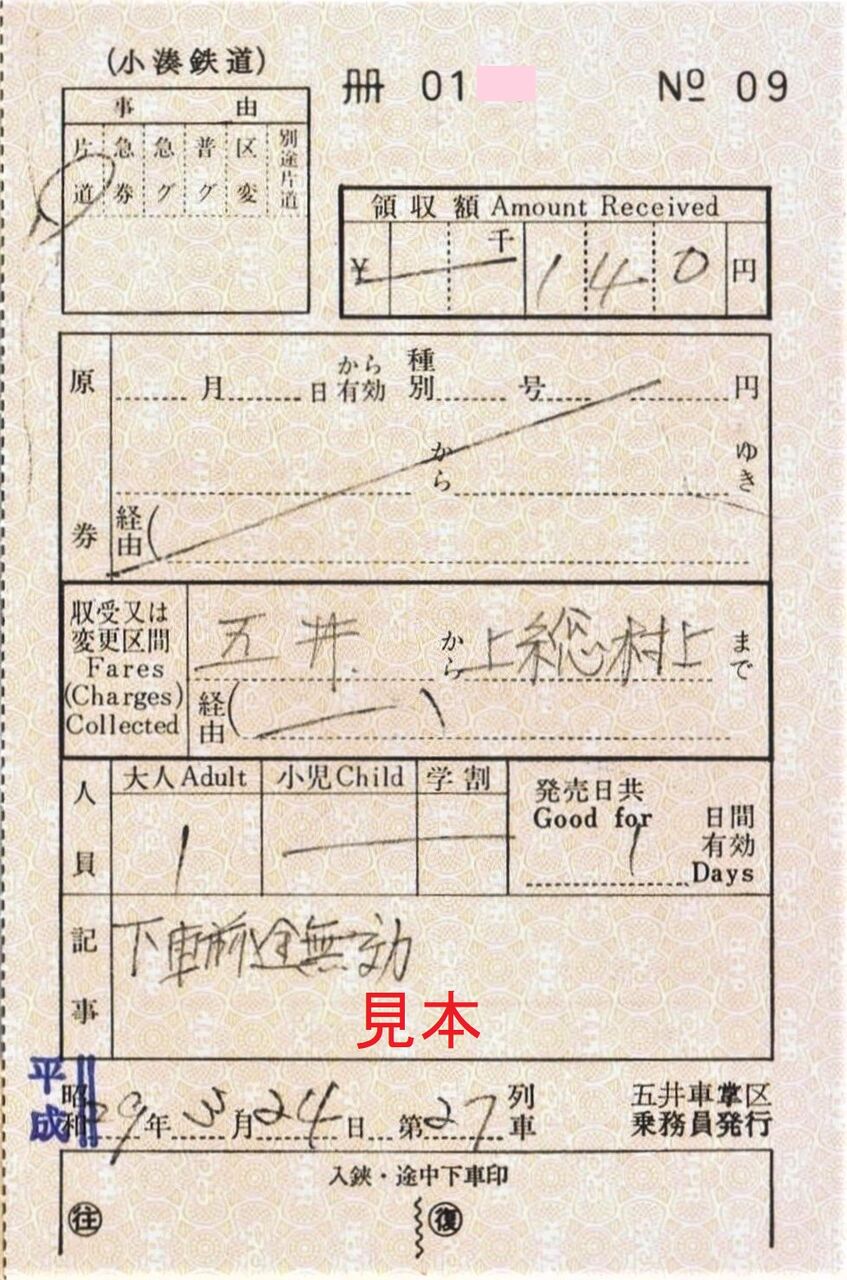 (小湊鉄道)
冊 01 № 09
事由
片道 急券 急グ 普グ 区変 別途片道
領収額 Amount Received
￥ 千 140 円
原券
月 日から有効 種別 号 円
から ゆき
経由(
収受又は変更区間 Fares (Charges) Collected
五井 から 上総村上 まで
経由( )
人員
大人Adult 小児Child 学割
1
発売日共 1 日間有効
Good for 1 Days
記事
下車前途無効
見本
平成 昭和 29年3月24日 第27列車
五井車掌区
乗務員発行
入鋏・途中下車印
往 復